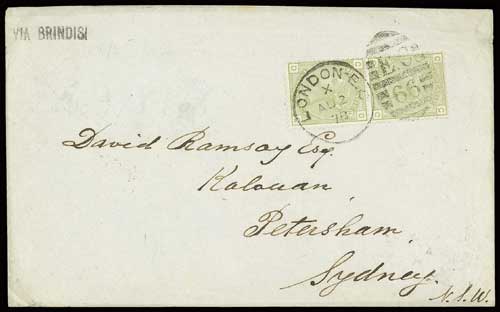 VIA BRINDISI
LONDON·E.C
X
AU 2
78
E.C
66
David Ramsay Esq.
Kalouan.
Petersham
Sydney.
N.S.W.